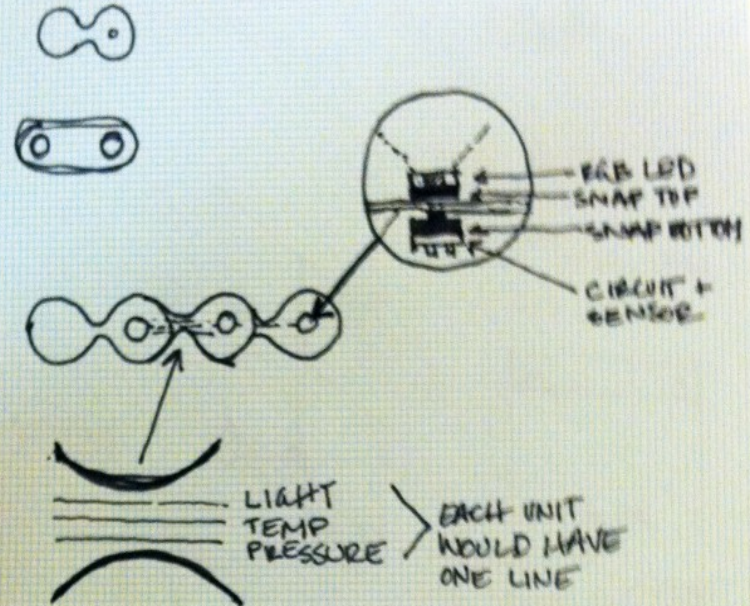 RGB LED
SNAP TOP
SNAP BOTTOM
CIRCUIT +
SENSOR
LIGHT
TEMP
PRESSURE
EACH UNIT
WOULD HAVE
ONE LINE